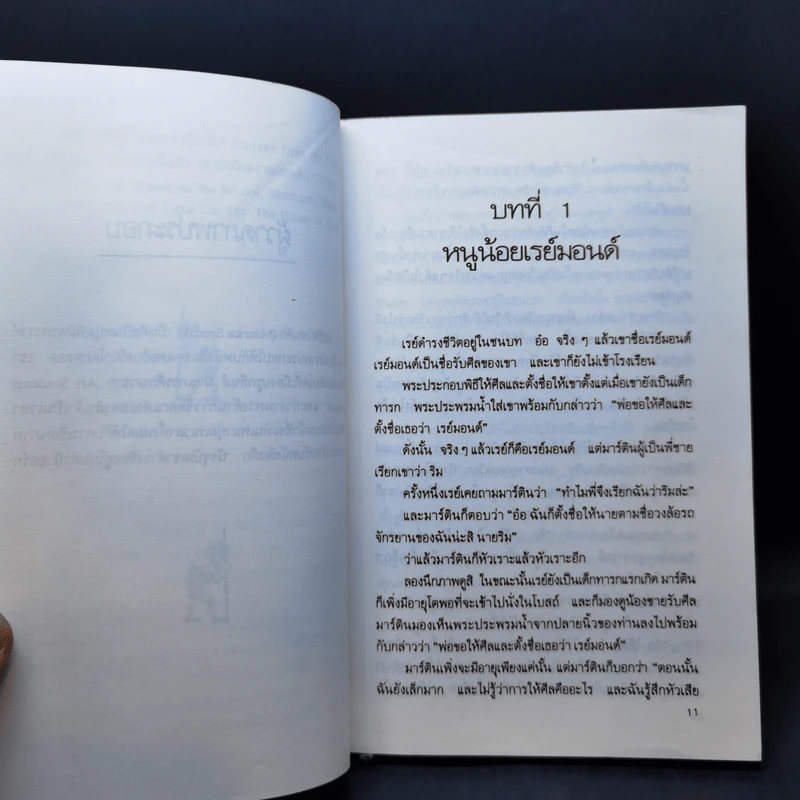 บทที่ 1
หนูน้อยเรย์มอนด์
เรย์ดำรงชีวิตอยู่ในชนบท อ๋อ จริง ๆ แล้วเขาชื่อเรย์มอนด์
เรย์มอนด์เป็นชื่อรับศีลของเขา และเขาก็ยังไม่เข้าโรงเรียน
พระประกอบพิธีให้ศีลและตั้งชื่อให้เขาตั้งแต่เมื่อเขายังเป็นเด็ก
ทารก พระประพรมน้ำใส่เขาพร้อมกับกล่าวว่า “พ่อขอให้ศีลและ
ตั้งชื่อเธอว่า เรย์มอนด์”
ดังนั้น จริง ๆ แล้วเรย์ก็คือเรย์มอนด์ แต่มาร์ตินผู้เป็นพี่ชาย
เรียกเขาว่า ริม
ครั้งหนึ่งเรย์เคยถามมาร์ตินว่า “ทำไมพี่จึงเรียกฉันว่าริมล่ะ”
และมาร์ตินก็ตอบว่า “อ๋อ ฉันก็ตั้งชื่อให้นายตามชื่อวงล้อรถ
จักรยานของฉันน่ะสิ นายริม”
ว่าแล้วมาร์ตินก็หัวเราะแล้วหัวเราะอีก
ลองนึกภาพดูสิ ในขณะนั้นเรย์ยังเป็นเด็กทารกแรกเกิด มาร์ติน
ก็เพิ่งมีอายุโตพอที่จะเข้าไปนั่งในโบสถ์ และก็มองดูน้องชายรับศีล
มาร์ตินมองเห็นพระประพรมน้ำจากปลายนิ้วของท่านลงไปพร้อม
กับกล่าวว่า “พ่อขอให้ศีลและตั้งชื่อเธอว่า เรย์มอนด์”
มาร์ตินเพิ่งจะมีอายุเพียงแค่นั้น แต่มาร์ตินก็บอกว่า “ตอนนั้น
ฉันยังเล็กมาก และไม่รู้ว่าการให้ศีลคืออะไร และฉันรู้สึกหัวเสีย
11